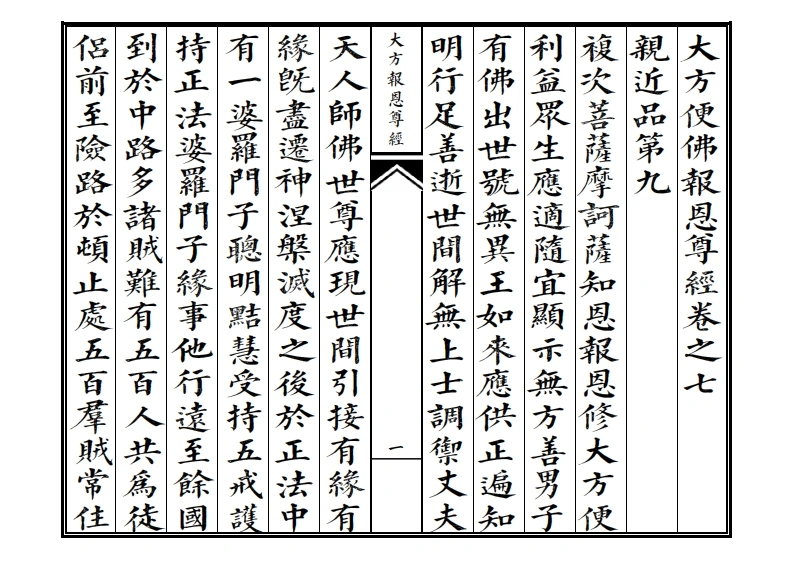 大方便佛報恩尊經卷之七
親近品第九
複次菩薩摩訶薩知恩報恩修大方便
利益眾生應適隨宜顯示無方善男子
有佛出世號無異王如來應供正遍知
明行足善逝世間解無上士調禦丈夫
大方報恩尊經
一
天人師佛世尊應現世間引接有緣有
緣既盡遷神涅槃滅度之後於正法中
有一婆羅門子聰明黠慧受持五戒護
持正法婆羅門子緣事他行遠至餘國
到於中路多諸賊難有五百人共為徒
侶前至險路於頓止處五百羣賊常住